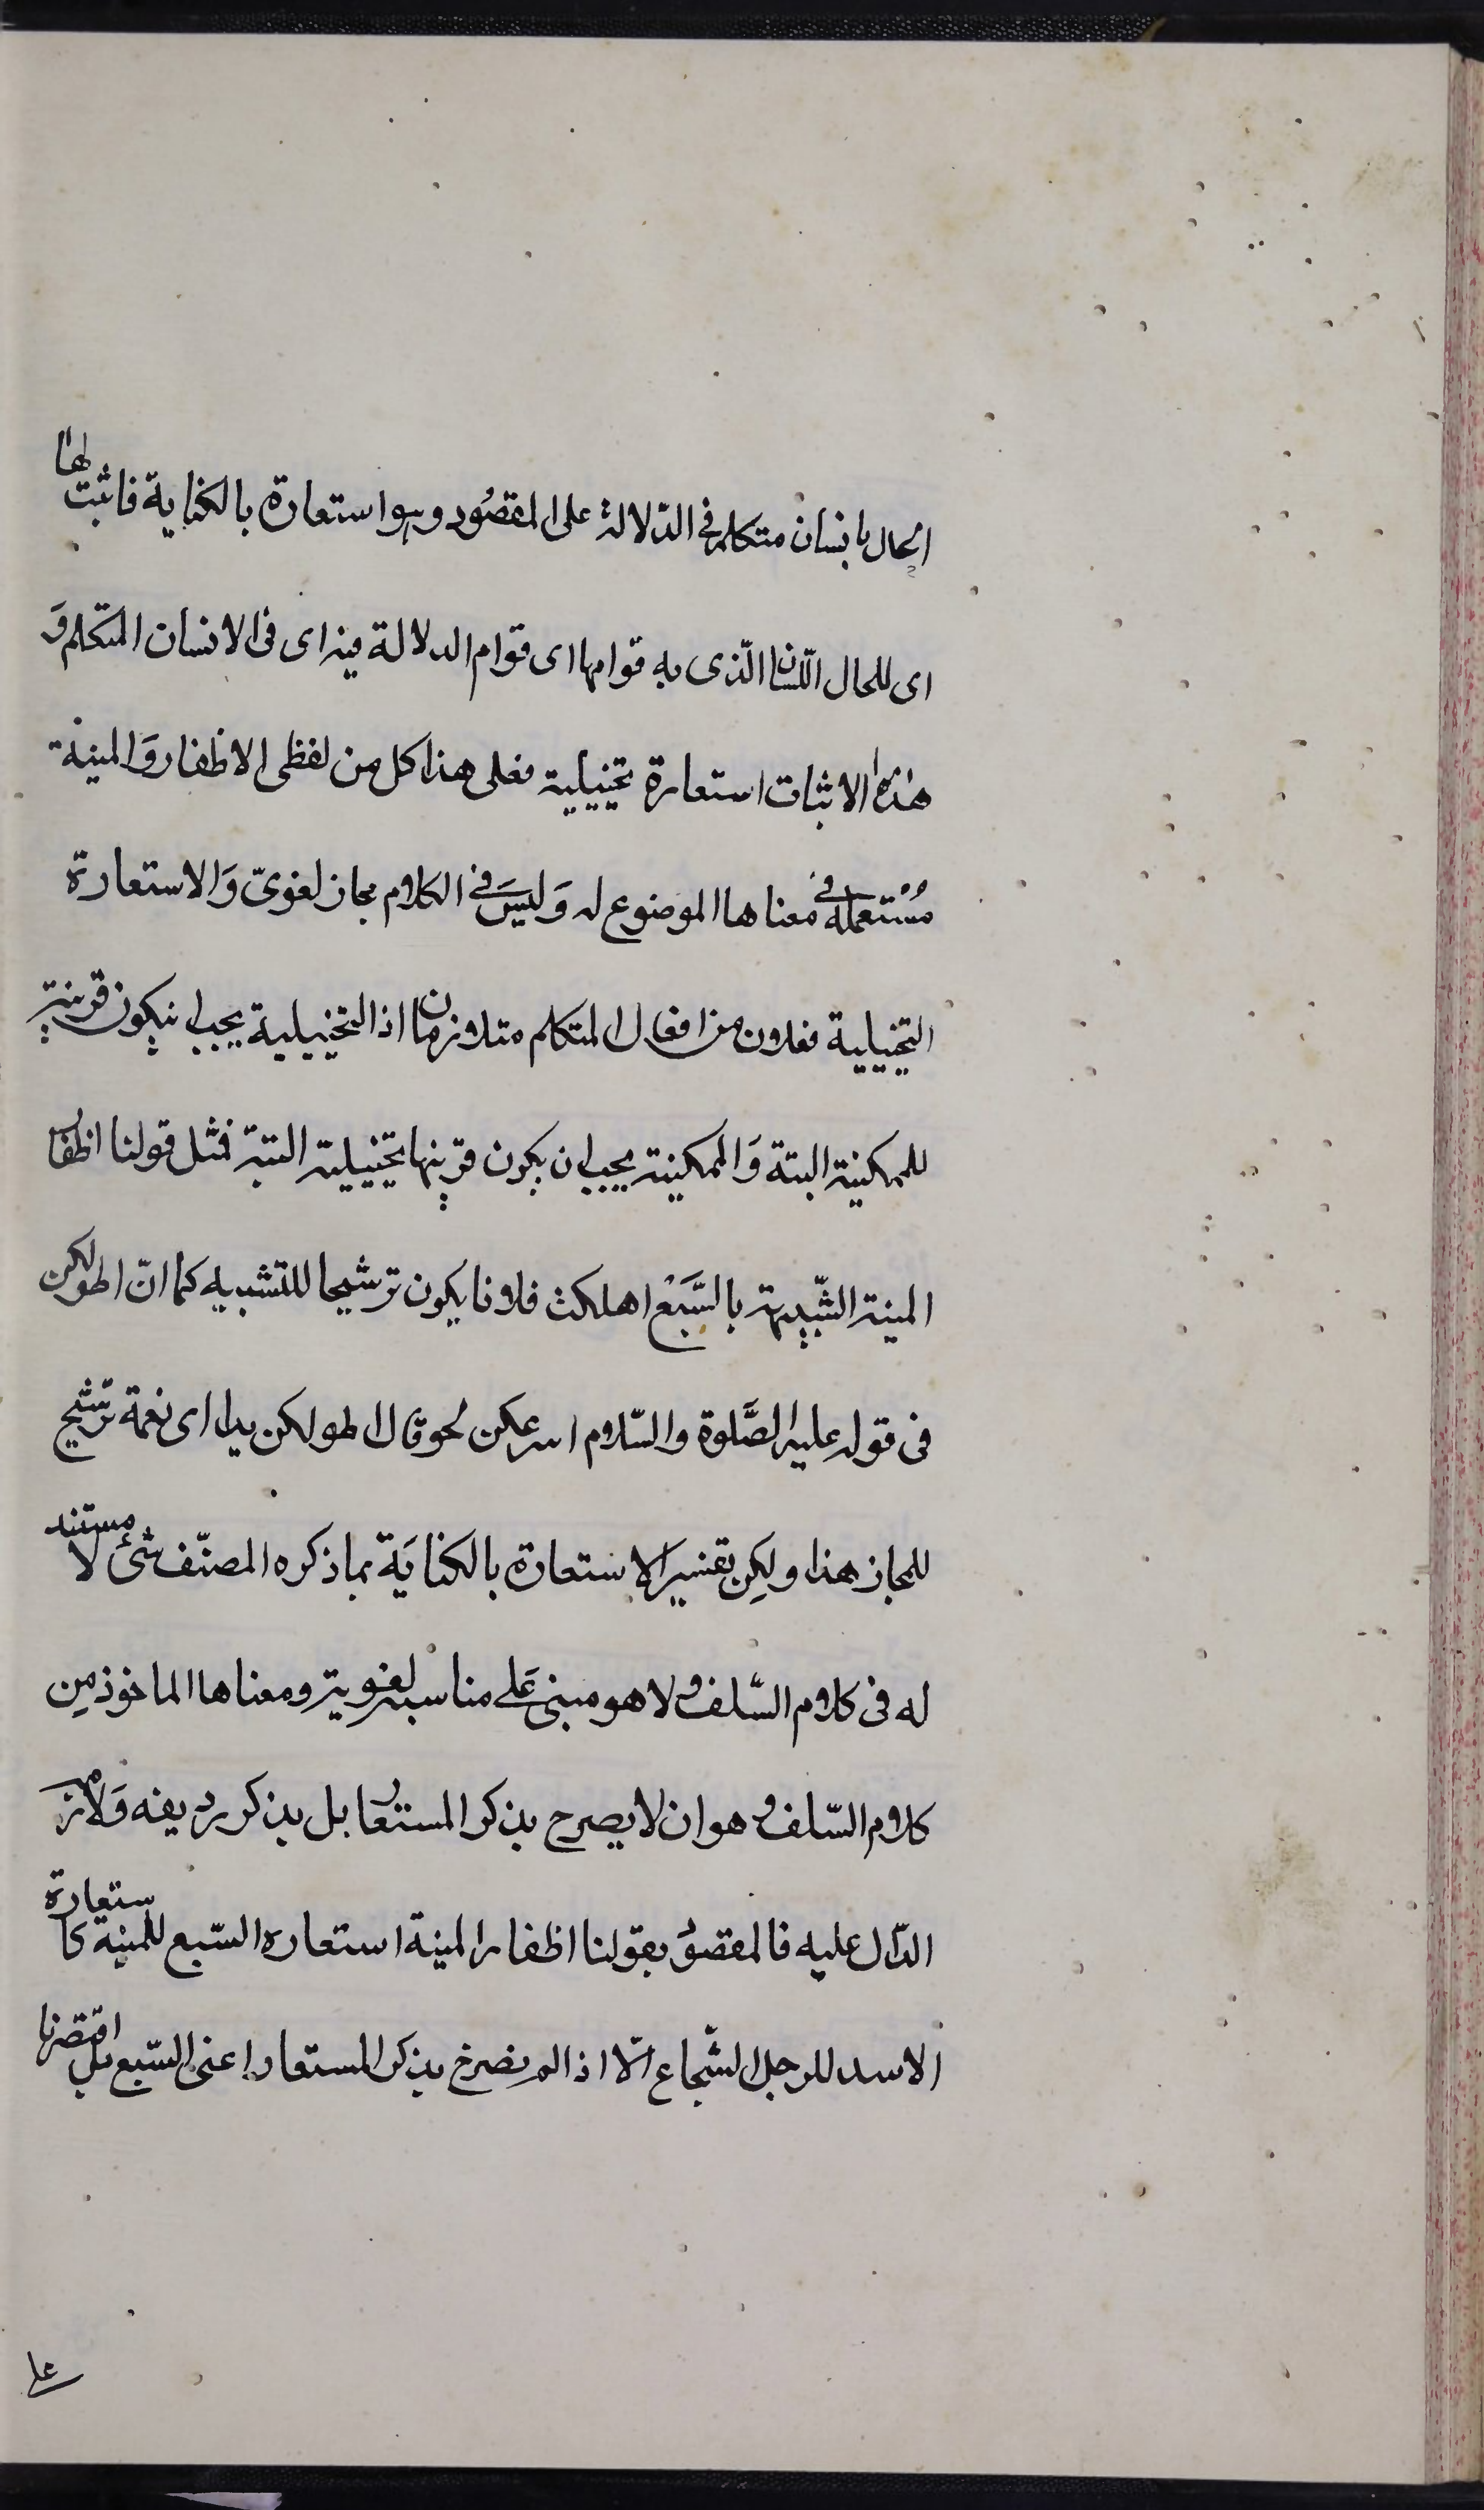 الحال بانسان متكلم فى الدّلالة على المقصُود وهو استعارة بالكناية فاثبت لها
اى للحال اللّسان الّذى به قوامها اى قوام الدلالة فيه اى فى الانسان المتكلم وَ
هذا الاثبات استعارة تخييلية فعلى هذا كل من لفظى الاظفار وَالمنية
مُسْتعملة فى معناها الموضوع له وَليسَ فى الكلام مجاز لغوىّ وَالاستعارة
التخييلية فعلان من افعال المتكلم متلازمان اذ التخييلية يجب ان يكون قرينة
للمكنية البتة وَالمكنية يجب ان يكون قرينها تخييلية البتة فمثل قولنا اظفار
المنية الشّبيهة بالسَّبَعْ اهلكت فلانا يكون ترشيحا للتشبيه كما انّ اطولكن
فى قوله عليه الصَّلوة والسّلام اسرعكن لحوقا ل اطولكن يدا اى نعمة ترشّيح
للمجاز هذا ولكِن تفسير الاستعارة بالكنايَة بما ذكره المصنّف شئ لا مستند
له فى كلام السّلف ولا هو مبنى عَلى مناسبة لغوية ومعناها الماخوذ مِن
كلام السّلف هو ان لا يصرح بذكر المستعار بل بذكر رديفه وَلازمه
الدّال عليه فالمقصوُد بقولنا اظفار المنية استعارة السّبع للمنية كاستعارة
الاسد للرجل الشّجاع الّا اذا لم نصرح بذكر المستعار اعنى السّبع بل اقتصرنا
على